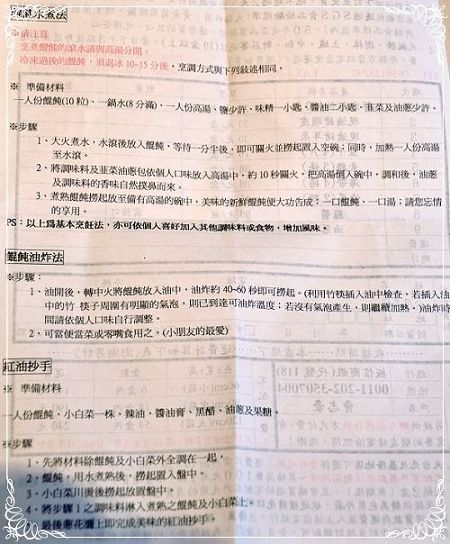 餛飩水煮法
※請注意
烹煮餛飩的滾水請與高湯分開。
冷凍過後的餛飩,須退冰10~15分後,烹調方式與下列敘述相同。
※ 準備材料
一人份餛飩(10粒)、一鍋水(8分滿)、一人份高湯、鹽少許、味精一小匙、醬油二小匙、韮菜及油蔥少許。
※步驟
1、大火煮水,水滾後放入餛飩,等待一分半後,即可關火並撈起置入空碗;同時,加熱一人份高湯
至水滾。
2、將調味料及韮菜油蔥包依個人口味放入高湯中,約10秒關火,把高湯倒入碗中,調和後,油蔥
及調味料的香味自然撲鼻而來。
3、煮熟餛飩撈起放至備有高湯的碗中,美味的新鮮餛飩便大功告成;一口餛飩,一口湯;請您忘情
的享用。
PS:以上為基本烹飪法,亦可依個人喜好加入其他調味料或食物,增加風味。
餛飩油炸法
※步驟:
1、油開後,轉中火將餛飩放入油中,油炸約40~60秒即可撈起。(利用竹筷插入油中檢查,若插入油
中的竹 筷子周圍有明顯的氣泡,則已到達可油炸溫度;若沒有氣泡產生,則繼續加熱。)油炸時
間請依個人口味自行調整。
2、可當便當菜或零嘴食用之。(小朋友的最愛)
紅油抄手
※ 準備材料
一人份餛飩、小白菜一株、辣油、醬油膏、黑醋、油蔥及果糖
※步驟
1、先將材料除餛飩及小白菜外全調在一起。
2、餛飩,用水煮熟後,撈起置入盤中。
3、小白菜川燙後撈起放置盤中。
4、將步驟1之調味料淋入煮熟之餛飩及小白菜上。
最後蔥花灑上即完成美味的紅油抄手。
0011-202-3507004